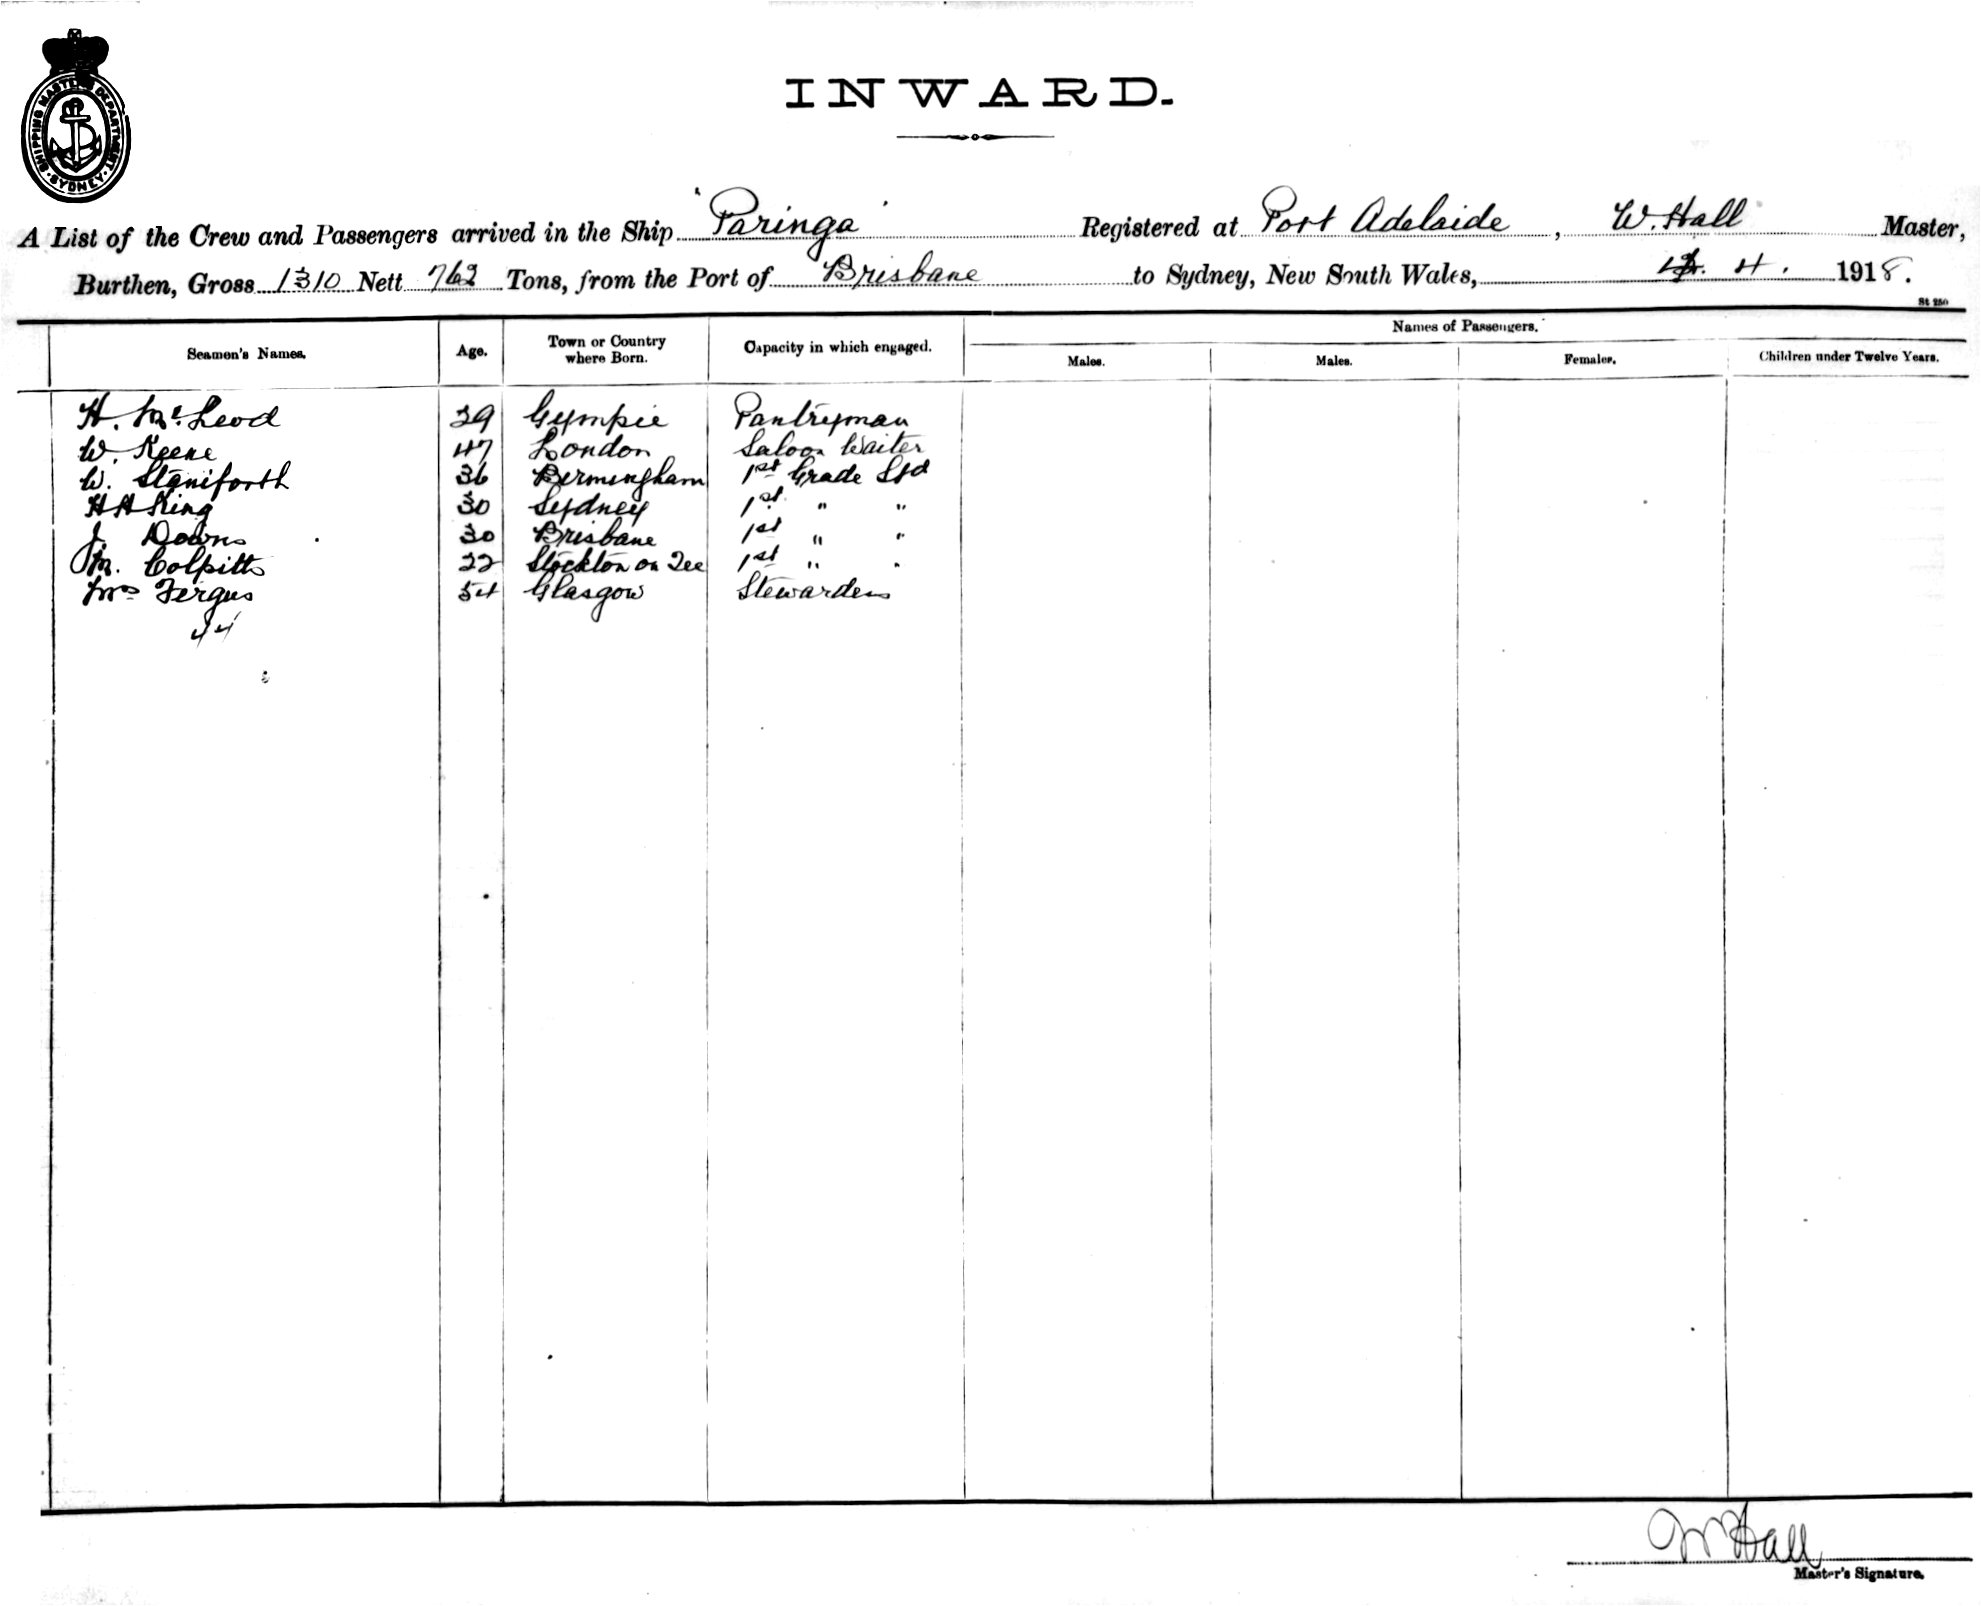 SHIPPING MASTERS DEPARTMENT. SYDNEY.
INWARD.
A List of the Crew and Passengers arrived in the Ship "Paringa" Registered at Port Adelaide, W. Hall Master,
Burthen, Gross 1310 Nett 762 Tons, from the Port of Brisbane to Sydney, New South Wales, 4. 1918.
St 250
Names of Passengers.
Seamen's Names. Age. Town or Country where Born. Capacity in which engaged. Males. Males. Females. Children under Twelve Years.
H. McLeod 29 Gympie Pantryman
W. Keene 47 London Saloon Waiter
W. Staniforth 36 Bermingham 1st Grade Std
H H King 30 Sydney 1st " "
J. Downs 30 Brisbane 1st " "
M. Colpitts 22 Stockton on Tee 1st " "
Mrs Fergus 54 Glasgow Stewardess
44
W Hall
Master's Signature.